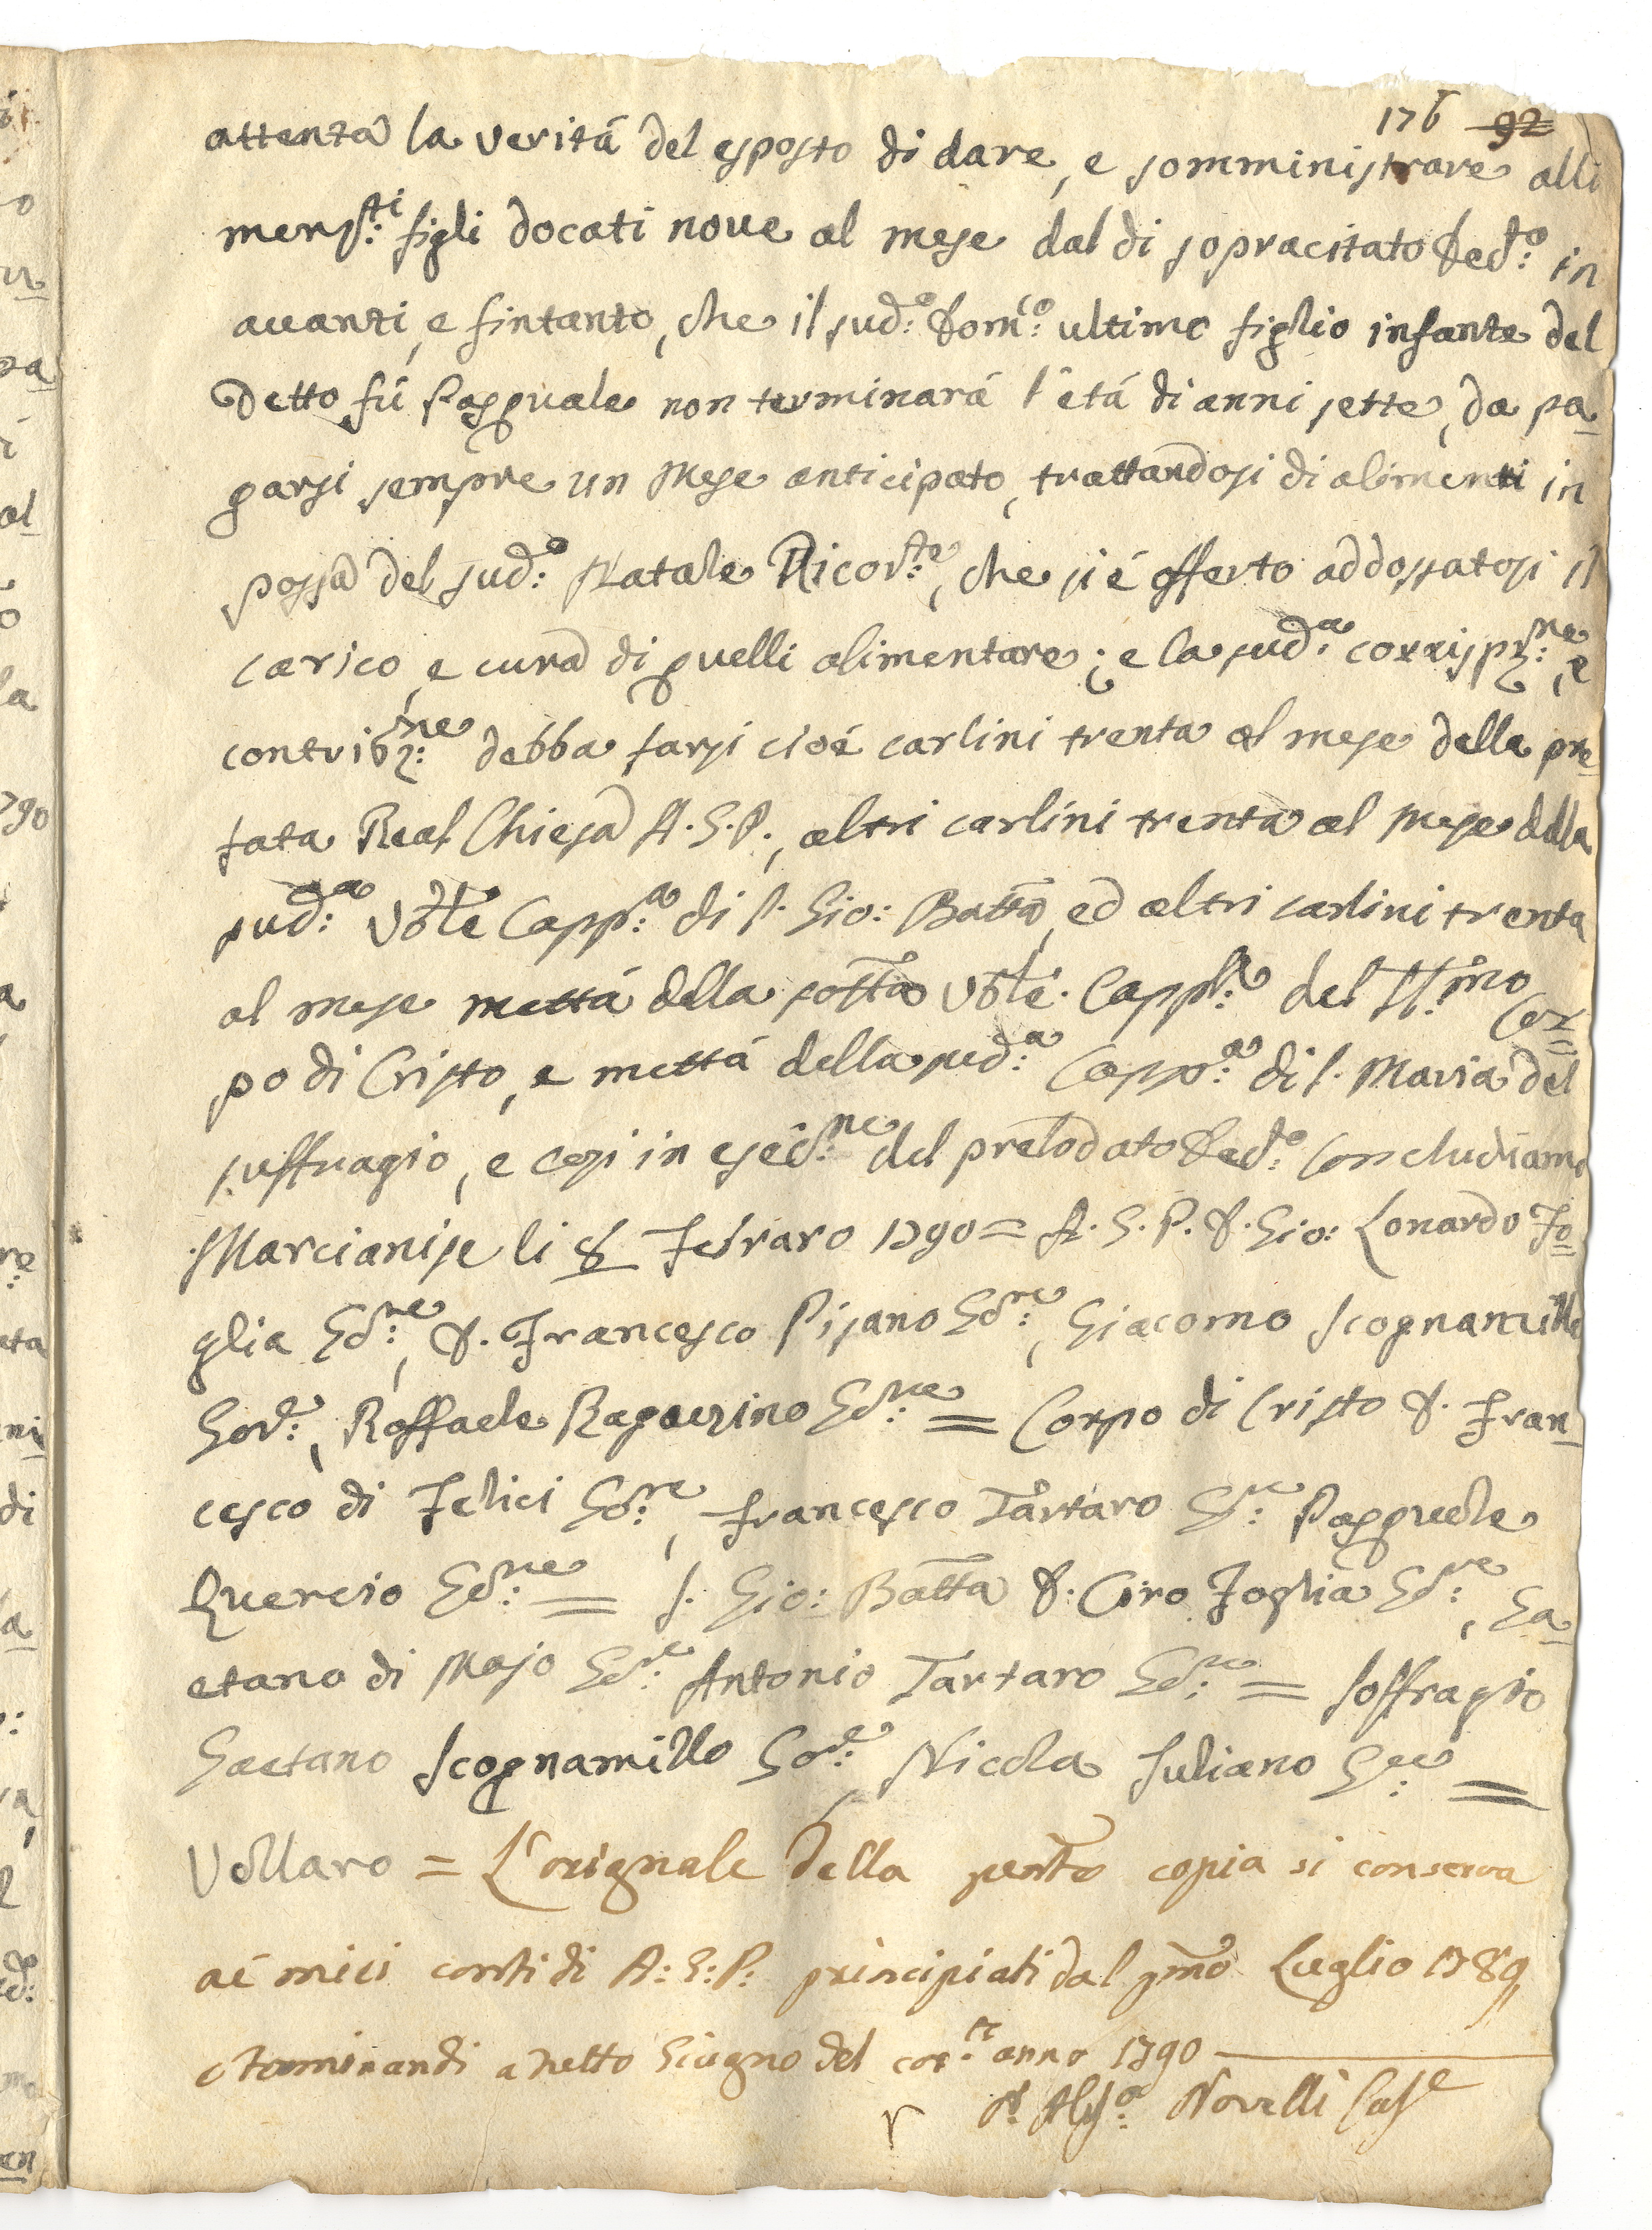 176 92
attenta la verità del esposto di dare, e somministrare alli
mens:ti figli docati nove al mese dal di sopracitato Ded:o in
avanti, e fintanto, che il sud:o Dom:co ultimo figlio infante del
Detto fù Pasquale non terminarà l'età di anni sette, da pa=
garsi sempre un Mese anticipato, trattandosi di alimenti in
possa del sud:o Natale Ricor:te, che si è offerto addossatosi il
carico, e cura di quelli alimentare; e la sud:a corrispz:ne, e
contribz:ne debba farsi cioè carlini trenta al mese dalla pre=
fata Real Chiesa A.G.P., altri carlini trenta al Mese dalla
sud:a Vble Capp:a di S. Gio: Batta, ed altri carlini trenta
al mese mettà della Vble Capp:a del SS:mo Cor=
po di Cristo, e mettà della sud:a Capp:a di S. Maria del
suffragio, e così in esec:ne del prelodato Ded:o Concludiamo
Marcianise li 8 Febraro 1790 = A.G.P. D. Gio: Lonardo Fo=
glia Gd:re, D. Francesco Pisano Gd:re, Giacomo Scognamillo
God:e, Raffaele Ragozzino Gd:re = Corpo di Cristo D. Fran=
cesco di Felici Gd:re, Francesco Tartaro Gd:re Pasquale
Quercio Gd:re = S. Gio: Batta D. Ciro Foglia Gd:re, Ga=
etano di Majo Gd:re Antonio Tartaro Gd:re = Soffragio
Gaetano Scognamillo God:e Nicola Iuliano Gre: =
Vollaro = L'orignale della copia si conserva
ai miei conti di A:G:P: principiati dal pmo Luglio 1789
e terminandi a tutto Giugno del cor:te anno 1790
Novelli Casse